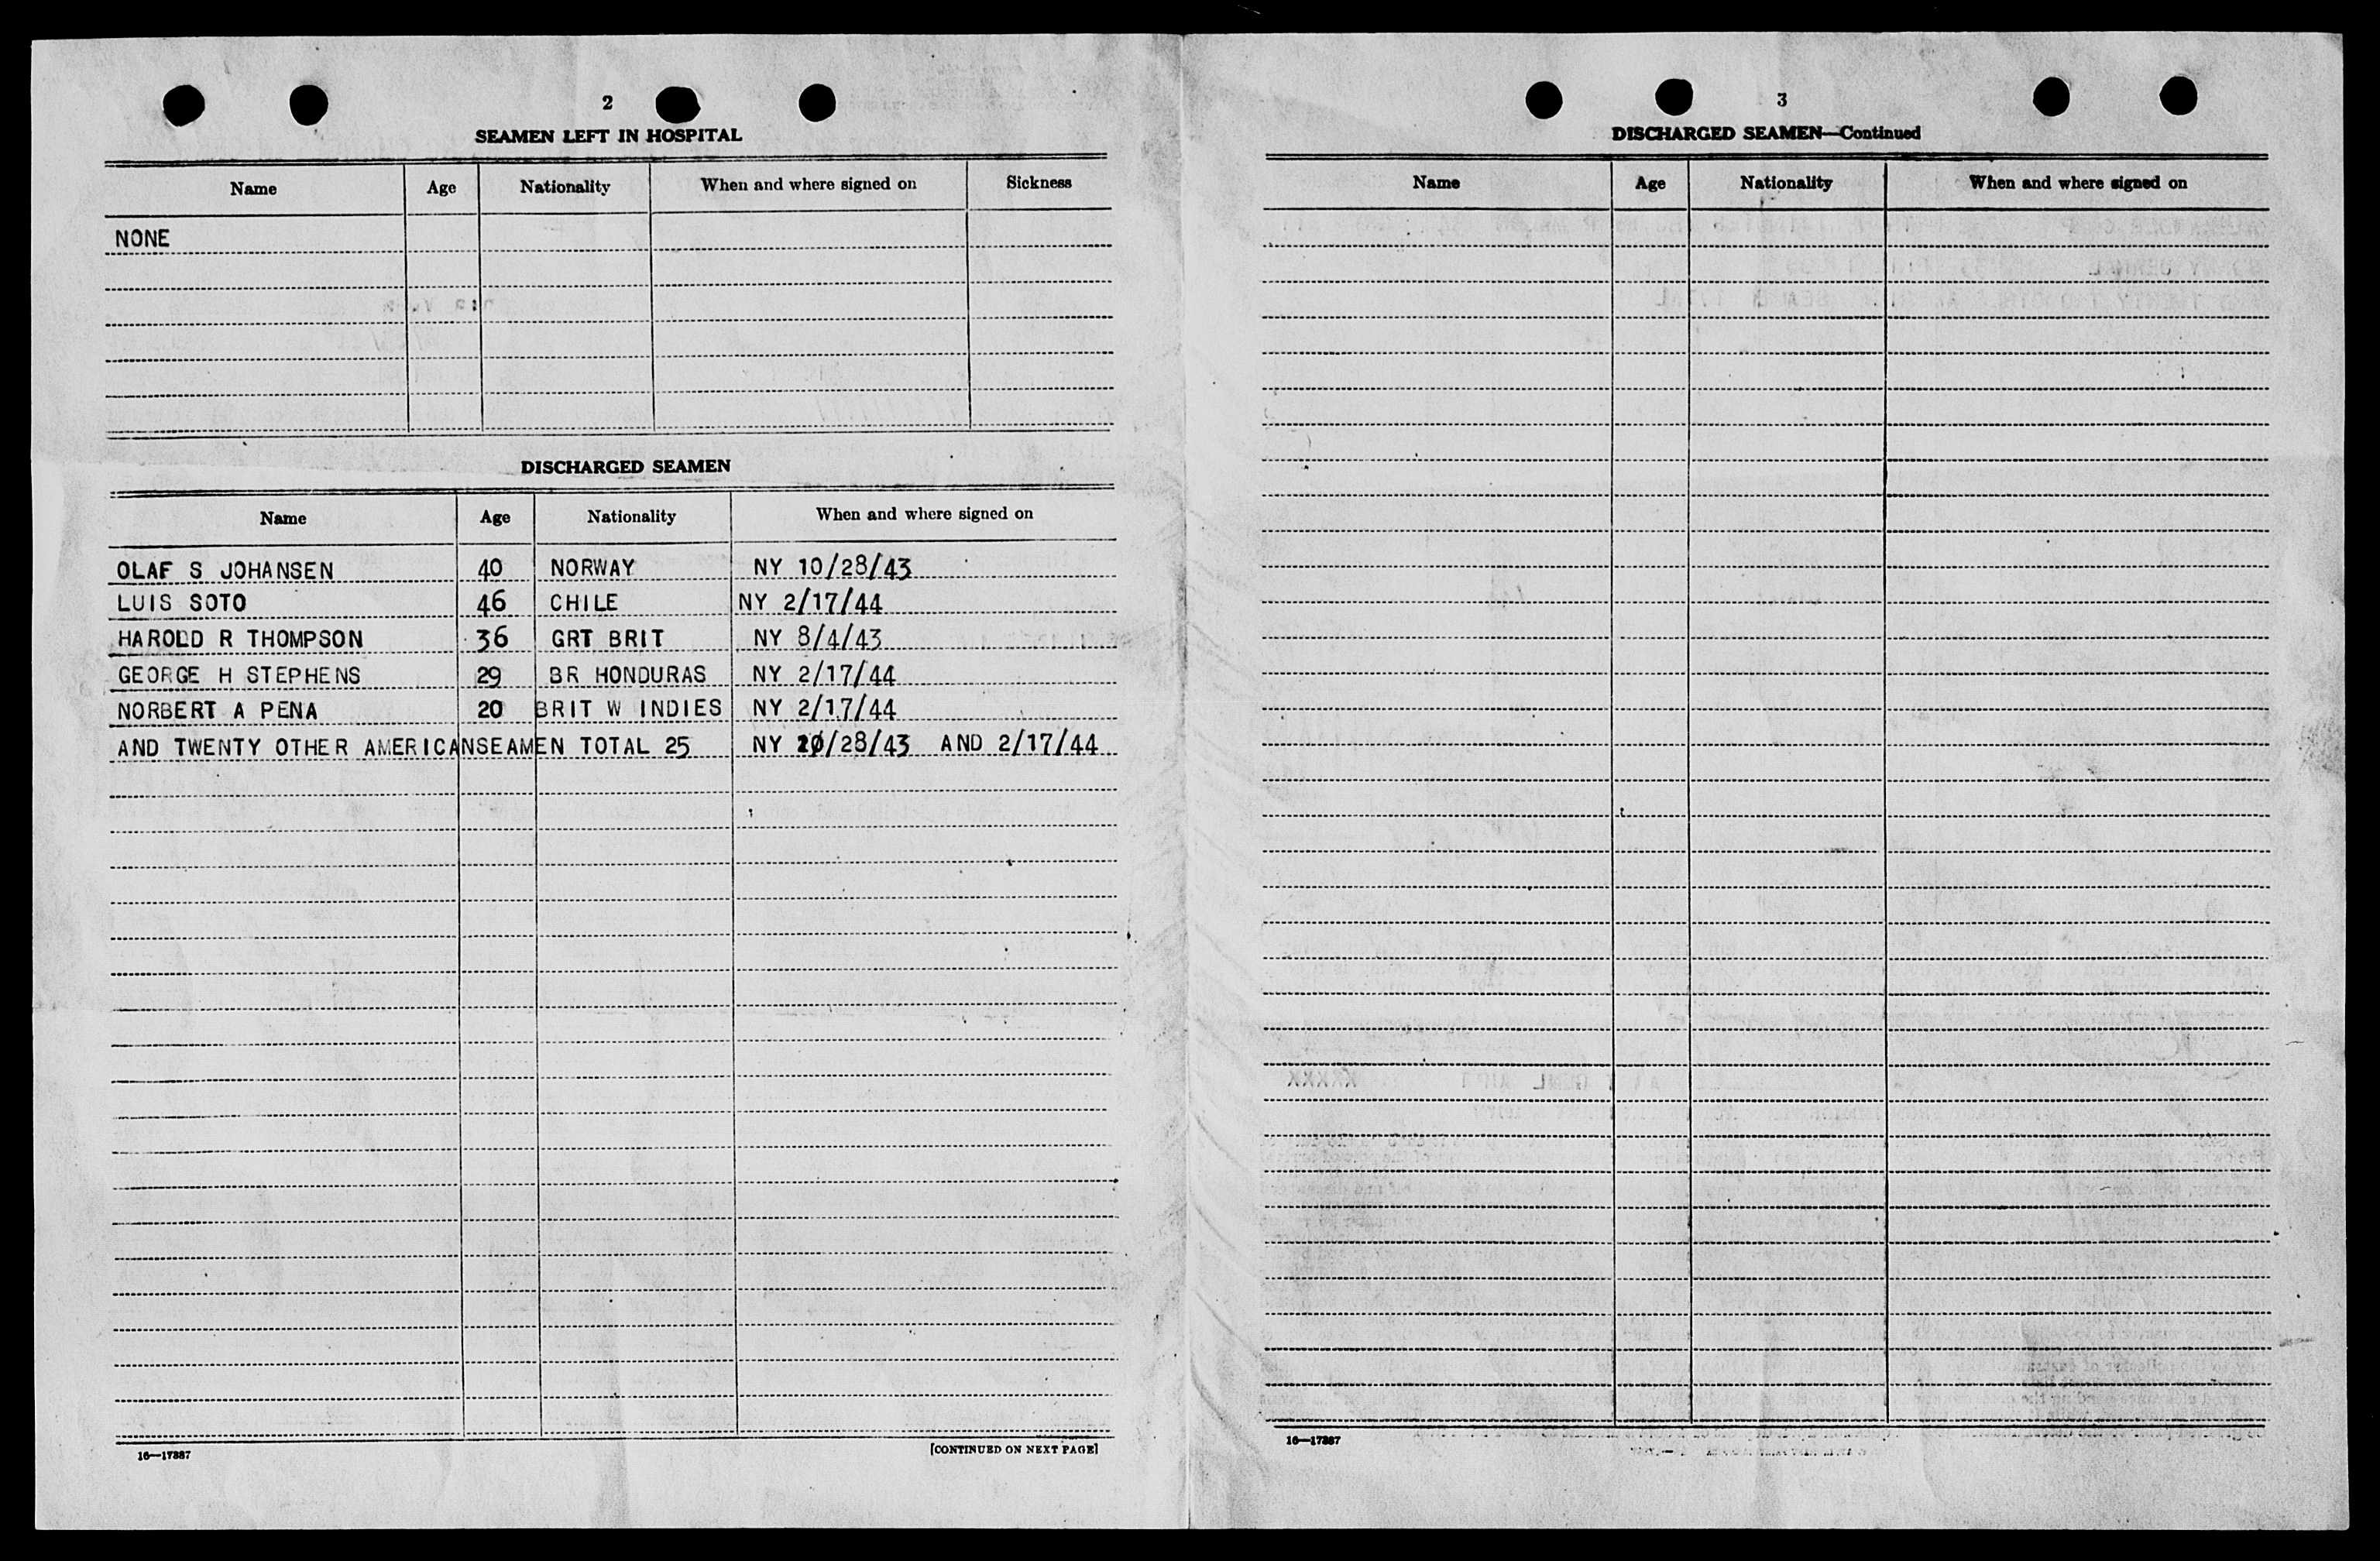 2
SEAMEN LEFT IN HOSPITAL
Name Age Nationality When and where signed on Sickness
NONE
DISCHARGED SEAMEN
Name Age Nationality When and where signed on
OLAF S JOHANSEN 40 NORWAY NY 10/28/43
LUIS SOTO 46 CHILE NY 2/17/44
HAROLD R THOMPSON 36 GRT BRIT NY 8/4/43
GEORGE H STEPHENS 29 BR HONDURAS NY 2/17/44
NORBERT A PENA 20 BRIT W INDIES NY 2/17/44
AND TWENTY OTHER AMERICANSEAMEN TOTAL 25 NY 10/28/43 AND 2/17/44
16—17887
[CONTINUED ON NEXT PAGE]
3
DISCHARGED SEAMEN—Continued
Name Age Nationality When and where signed on
16—17887